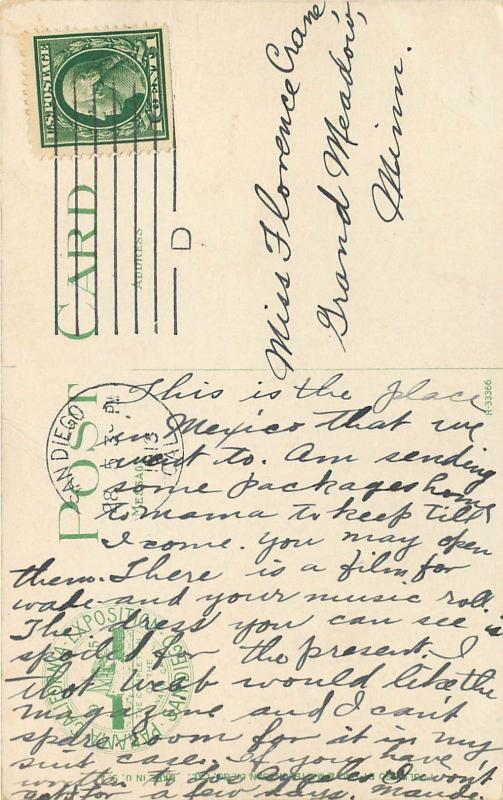 U.S. POSTAGE
1 CENT 1
D
POST CARD
ADDRESS
MESSAGE
Miss Florence Crane
Grand Meadow,
Minn.
SAN DIEGO
5 30 PM
1913
CAL.
R-33366
This is the place
in Mexico that we
went to. Am sending
some packages home
to mama to keep till
I come. you may open
them. There is a film for
wade and your music roll.
The dress you can see is
spoiled for the present. I
that would like the
magazine and I can't
spare room for it in my
suit case. If you have
written to I won't
get for a few days. Maude.
PANAMA CALIFORNIA EXPOSITION
SAN DIEGO
MADE IN U.S.A.